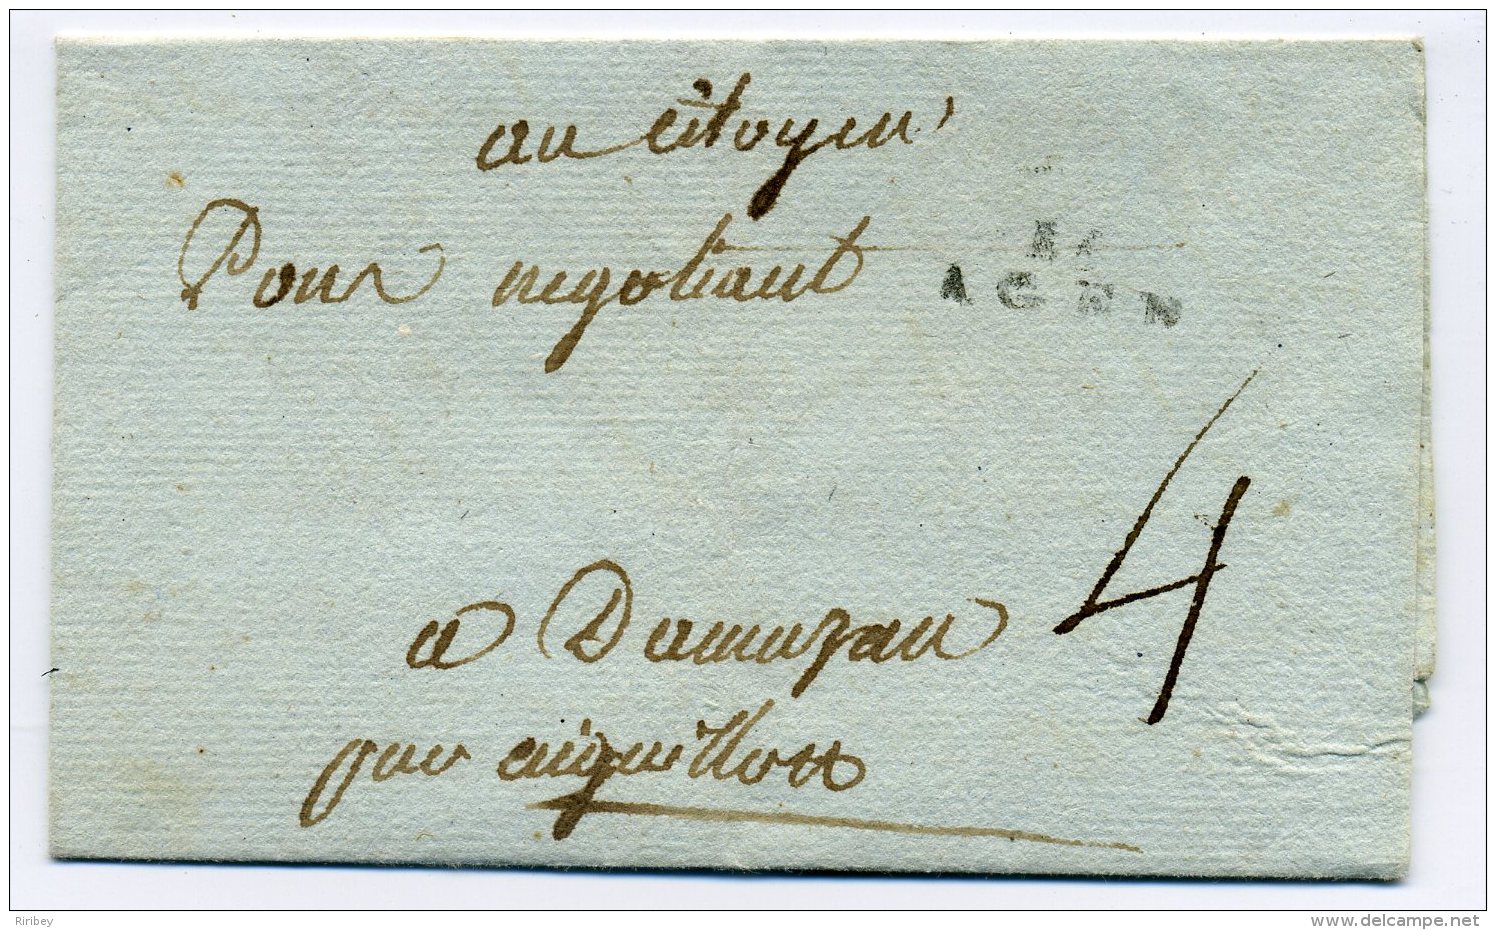 au citoyen
Pons negotiant
AGEN
4
a Damazan
par aiguillon
Riribey
www.delcampe.net